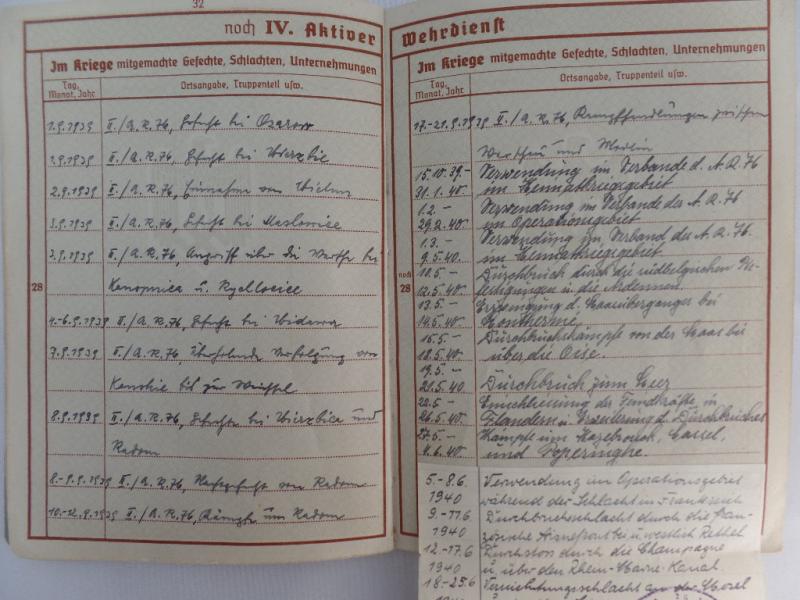 32
noch IV. Aktiver
Im Kriege mitgemachte Gefechte, Schlachten, Unternehmungen
Tag, Monat, Jahr
Ortsangabe, Truppenteil usw.
1.9.1939 II./A.R.76, Gefecht bei Ozarow
1.9.1939 II./A.R.76, Gefecht bei Wierzbie
2.9.1939 II./A.R.76, Einnahme von Wielun
3.9.1939 II./A.R.76, Gefecht bei Maslowice
3.9.1939 II./A.R.76, Angriff über die Warthe bei
28
Konopnica u. Rychlocice
4.-6.9.1939 II./A.R.76, Gefecht bei Widawa
7.9.1939 II./A.R.76, Überholende Verfolgung von
Konskie bis zur Weichsel
8.9.1939 II./A.R.76, Gefechte bei Wierzbica und
Radom
8.-9.9.1939 II./A.R.76, von Radom
10.-12.9.1939 II./A.R.76, Kämpfe um Radom
Wehrdienst
Im Kriege mitgemachte Gefechte, Schlachten, Unternehmungen
Tag, Monat, Jahr
Ortsangabe, Truppenteil usw.
17.-21.9.1939 II./A.R.76, Kampfhandlungen zwischen
Warschau und Modlin
15.10.39.- Verwendung im Verbande d. A.R.76
31.1.40. im Heimatkriegsgebiet
1.2.- Verwendung im Verbande des A.R.76
29.2.40. im Operationsgebiet
1.3.- Verwendung im Verband des A.R.76.
9.5.40. im Heimatkriegsgebiet
10.5.- Durchbruch durch die südbelgischen Be-
noch 28
12.5.40. festigungen u. die Ardennen.
13.5.- Erzwingung d. Maasüberganges bei
14.5.40. Monthermé
15.5.- Durchbruchskämpfe von der Maas bis
18.5.40. über die Oise.
19.5.-
21.5.40. Durchbruch zum Meer
22.5.- Einschliessung der Feindkräfte in
26.5.40. Flandern u. Erweiterung d. Durchbruches
27.5.- Kämpfe um Hazebrouck, Cassel,
4.6.40. und Poperinghe.
5.-8.6. Verwendung im Operationsgebiet
1940 während der Schlacht in Frankreich
9.-11.6. Durchbruchsschlacht durch die fran-
1940 zösische Aisnefront bei u. westlich Rethel
12.-17.6 Durchstoss durch die Champagne
1940 u. über den Rhein-Marne-Kanal
18-25.6 Vernichtungsschlacht an der Mosel